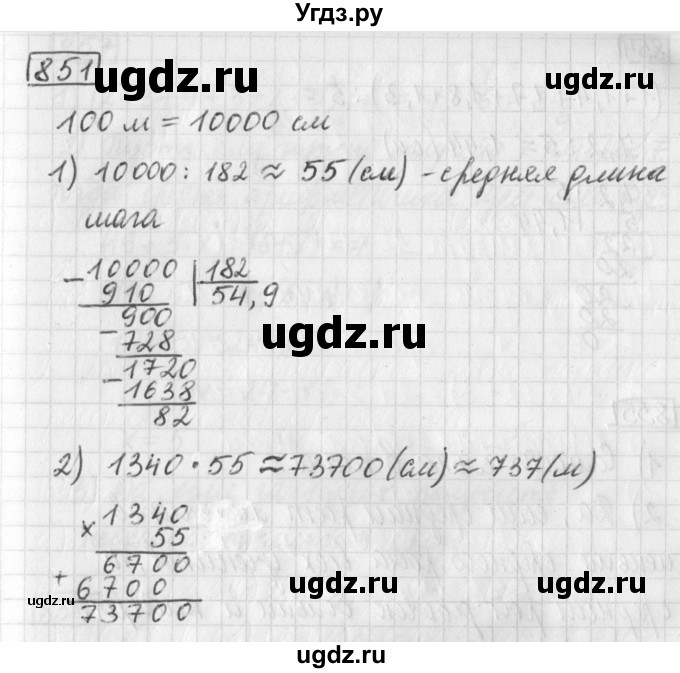 Угдз.ру
851
ugdz.ru
ugdz.ru
100 м = 10000 см
1) 10000 : 182 ≈ 55 (см) - средняя длина
ugdz.ru
шага
- 10000 | 182
910 54,9
- 900
728
ugdz.ru
- 1720
1638
82
2) 1340 · 55 ≈ 73700 (см) ≈ 737 (м)
× 1340
55
6700
+ 6700
73700
ugdz.ru
ugdz.ru
ugdz.ru
ugdz.ru